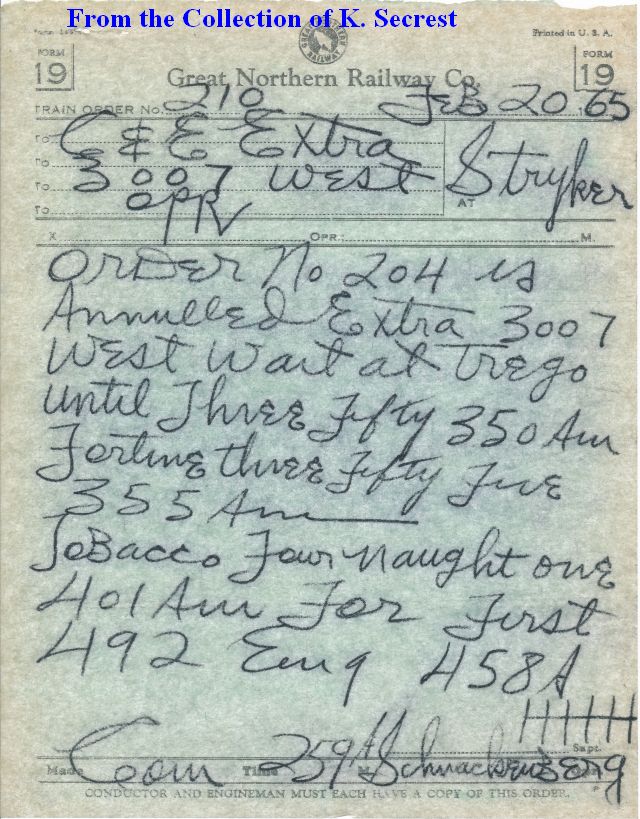 From the Collection of K. Secrest
Printed in U. S. A.
FORM 19
FORM 19
GREAT NORTHERN RAILWAY
Great Northern Railway Co.
TRAIN ORDER No. 210 Feb 20 65
To C & E Extra
To 3007 West
To OPR
To
AT Stryker
X OPR.: M.
Order No 204 is
Annulled Extra 3007
West Wait at Trego
until Three Fifty 350 Am
Fortine three Fifty Five
355 Am
Tobacco Four naught one
401 Am For First
492 Eng 458A
HHH
Supt.
Made Com Time 259 A Schnackenberg
CONDUCTOR AND ENGINEMAN MUST EACH HAVE A COPY OF THIS ORDER.